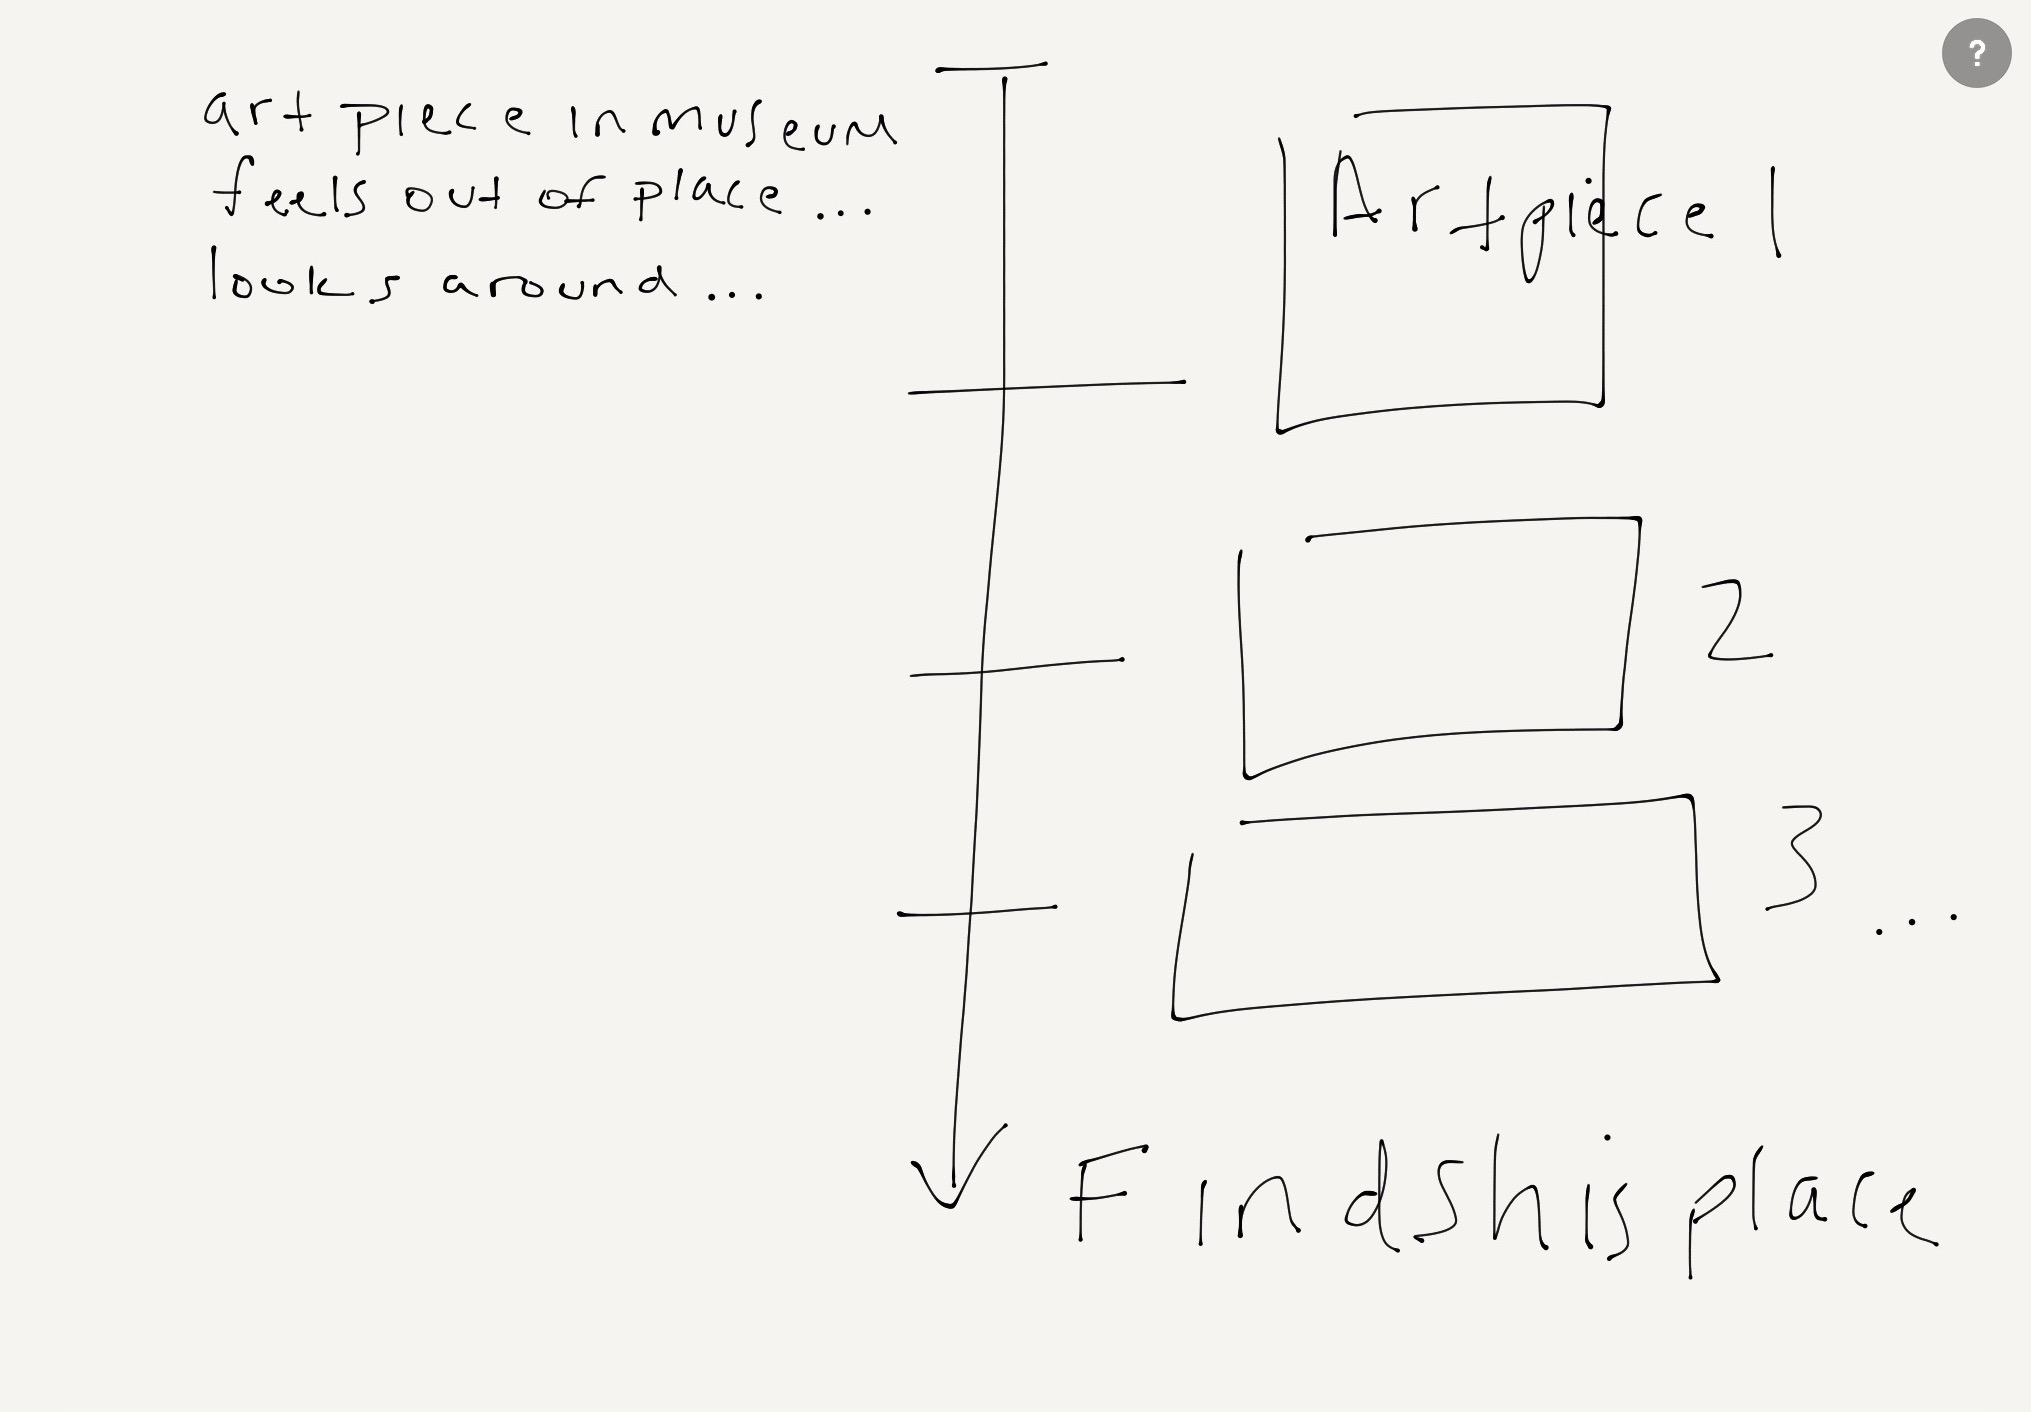 art piece in museum
feels out of place...
looks around...
Artpiece 1
2
3 ...
Finds his place
?